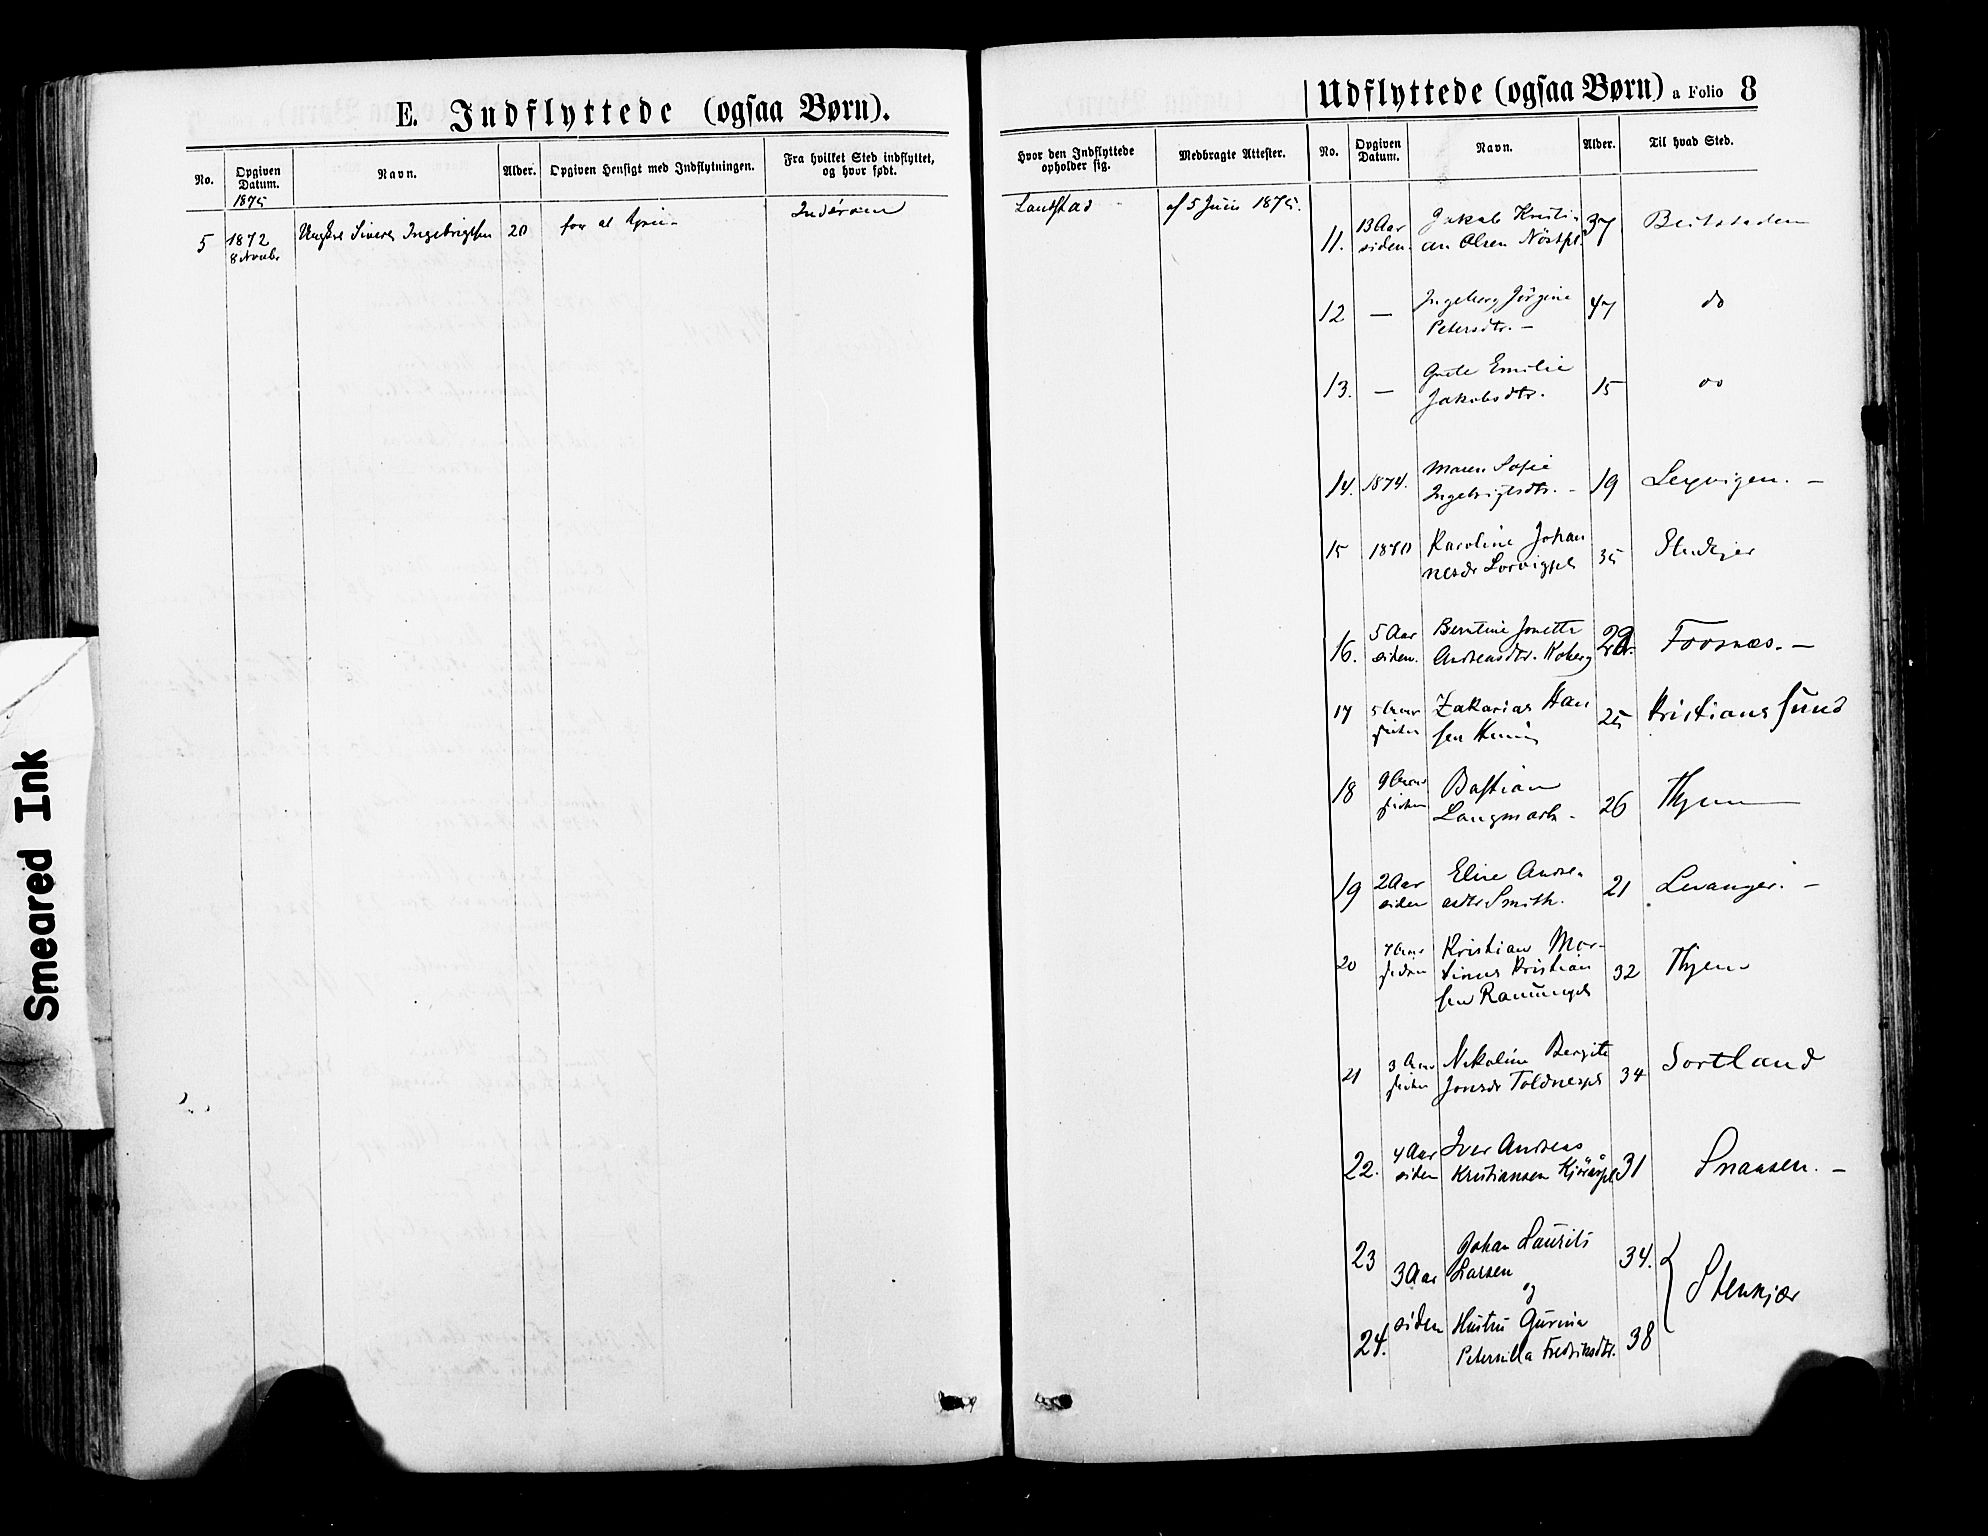 E. Indflyttede (ogsaa Børn).
No.
Opgiven Datum.
Navn.
Alder.
Opgiven Hensigt med Indflytningen.
Fra hvilket Sted indflyttet, og hvor født.
1875
5 1872 Ungkrl Sivert Ingebrigtsen 20 for at tjene Inderøen
8 Novbr.
Udflyttede (ogsaa Børn) a Folio 8
Hvor den Indflyttede opholder sig.
Medbragte Attester.
No.
Opgiven Datum.
Navn.
Alder.
Til hvad Sted.
af 5 Juni 1875.
11. 13 Aar Jakob Kristi- 37 Beitstaden
siden. an Olsen
12 — Ingeborg Jørgine 47 do
Petersdtr. —
13. — Grete Emilie 15 do
Jakobsdtr.
14. 1874. Maren Sofie 19 Lexvigen. —
Ingebrigtsdtr. —
15 1870 Karoline Johan 35 Stenkjer
nesdr
16. 5 Aar Berntine Jonette 29 Fosnæs. —
siden. Andreasdtr. Koberg
17 5 Aar Zakarias Han 25 Kristianssund
siden sen
18 9 Aar Bastian 26 Thjem
siden Langmark -
19 2 Aar Elise Andre- 21 Levanger. —
siden asdtr Smith.
20 7 Aar Kristian Mar- 32 Thjem
siden tinus Kristian
sen
21 3 Aar Nikoline Bergite 34 Sortland
siden Jonsdr Toldnespl
22. 4 Aar Iver Andreas 31 Snaasen. —
siden Kristiansen
23 Johan Laurits 34.
3 Aar Larsen
og Stenkjær
siden Hustru Gurina
24. Peternilla Fredriksdtr. 38
Smeared Ink